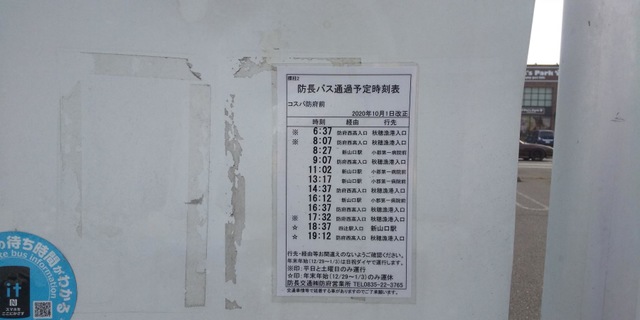 防長バス通過予定時刻表
コスパ防府前
2020年10月1日改正
時刻 経由 行先
※ 6:37 防府西高入口 秋穂漁港入口
※ 8:07 防府西高入口 秋穂漁港入口
8:27 新山口駅 小郡第一病院前
9:07 防府西高入口 秋穂漁港入口
11:02 新山口駅 小郡第一病院前
13:17 新山口駅 小郡第一病院前
14:37 防府西高入口 秋穂漁港入口
16:12 新山口駅 小郡第一病院前
16:37 防府西高入口 秋穂漁港入口
※ 17:32 防府西高入口 秋穂漁港入口
☆ 18:37 四辻駅入口 新山口駅
☆ 19:12 防府西高入口 秋穂漁港入口
行先・経由等お間違えのないようご確認ください。
年末年始(12/29～1/3)は日祝ダイヤで運行します。
※印:平日と土曜日のみ運行
☆印:年末年始(12/29～1/3)のみ運休
防長交通㈱防府営業所 TEL0835-22-3765
交通事情等で延着する事がありますのでご了承願います。
の待ち時間がわかる
bus information!
it
スマホを
ここにかざす
's Park